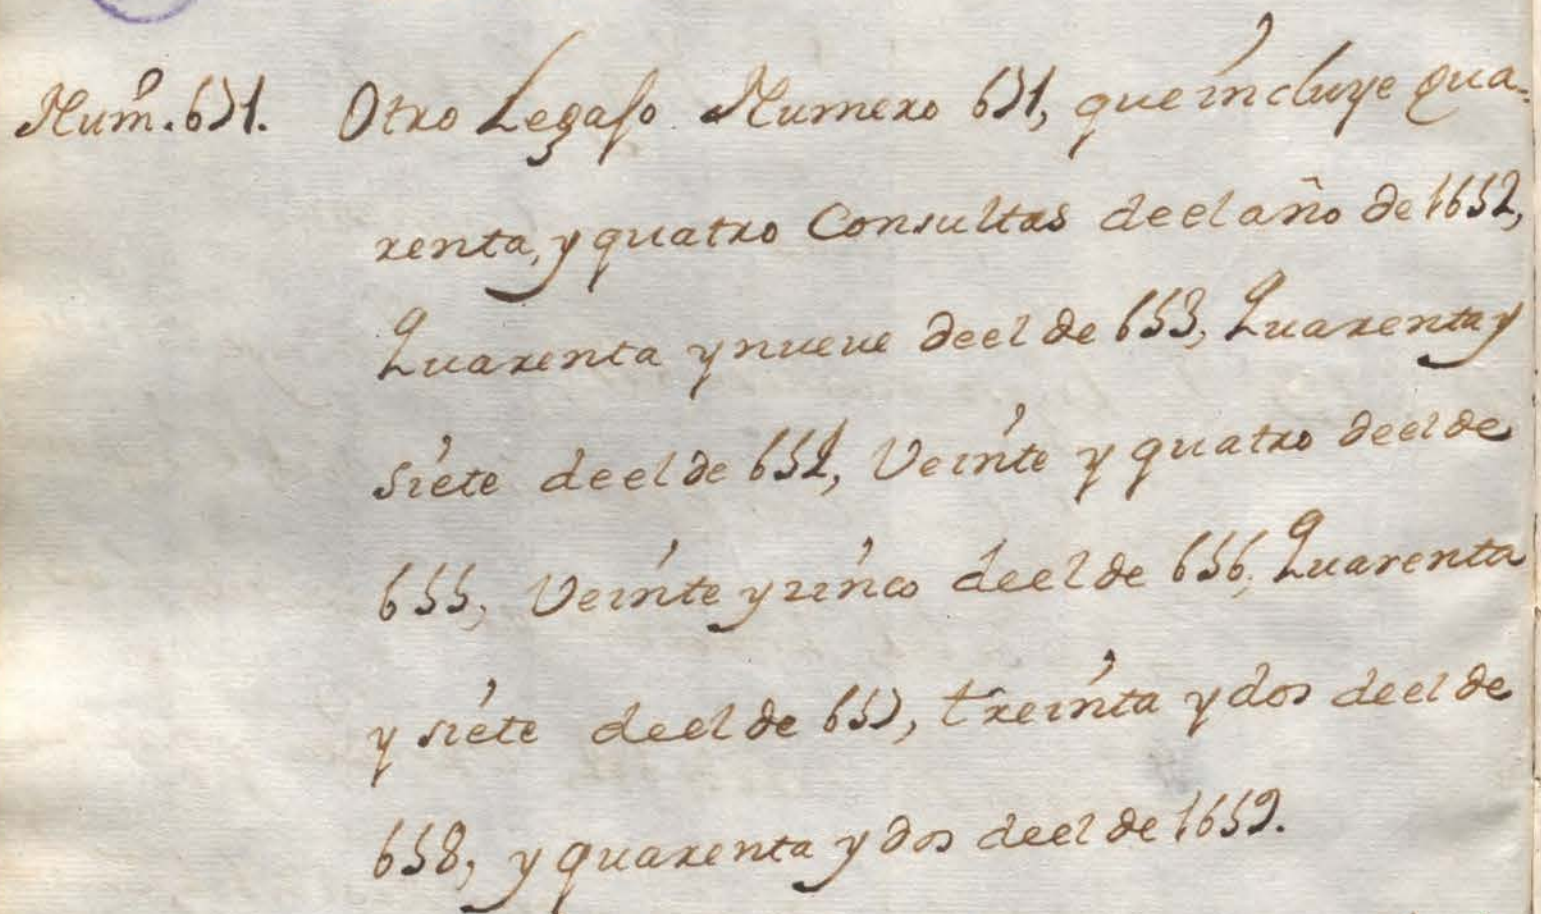 Num.º 671. Otro Legajo Numero 671, que incluye qua-
renta, y quatro Consultas deel año de 1652,
Quarenta y nueve deel de 653, Quarenta y
siete deel de 654, Veinte y quatro deel de
655, Veinte y zinco deel de 656, Quarenta
y siete deel de 657, treinta y dos deel de
658, y quarenta y dos deel de 1659.